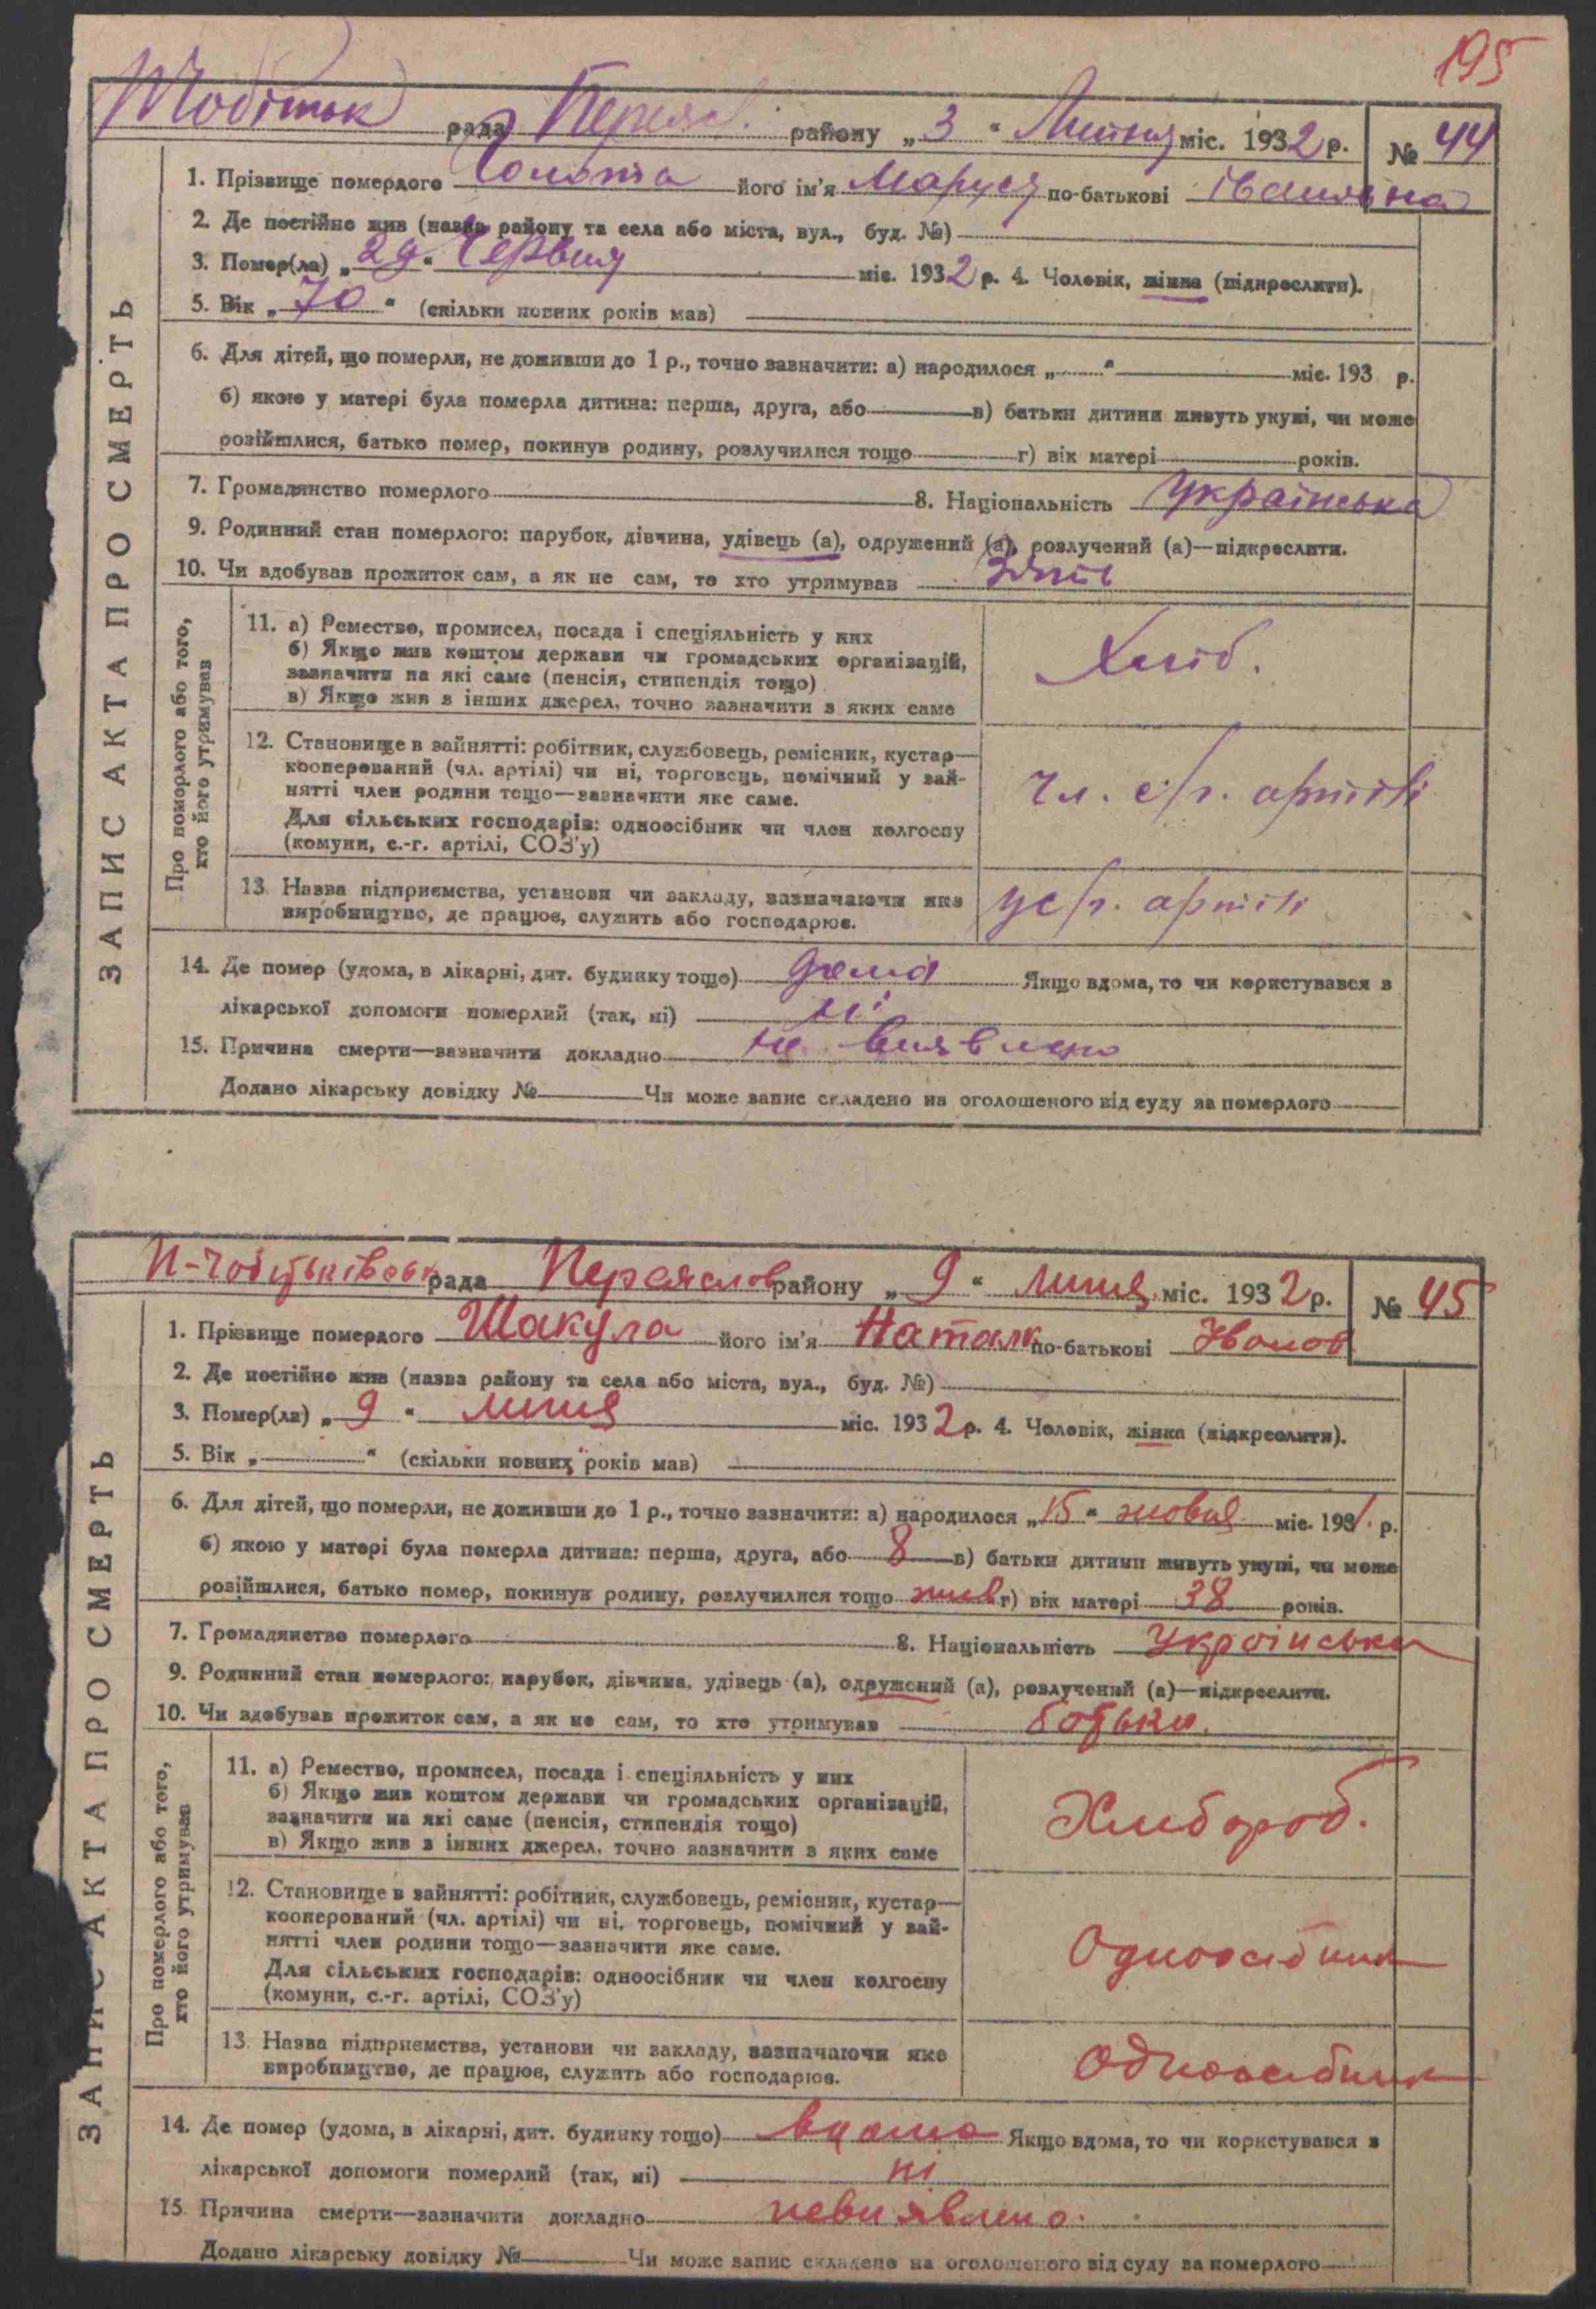 195
рада Переясл. району „3“ Липня міс. 1932 р. № 44
1. Прізвище померлого його ім'я Маруся по-батькові Івановна
2. Де постійно жив (назва району та села або міста, вул., буд. №)
3. Помер(ла) „29“ Червня міс. 1932 р. 4. Чоловік, жінка (підкреслити).
5. Вік „70“ (скільки повних років мав)
6. Для дітей, що померли, не доживши до 1 р., точно зазначити: а) народилося „ “ міс. 193 р.
б) якою у матері була померла дитина: перша, друга, або в) батьки дитини живуть укупі, чи може
розійшлися, батько помер, покинув родину, розлучилися тощо г) вік матері років.
7. Громадянство померлого 8. Національність Українська
9. Родинний стан померлого: парубок, дівчина, удівець (а), одружений (а), розлучений (а)—підкреслити.
10. Чи здобував прожиток сам, а як не сам, то хто утримував зять
ЗАПИС АКТА ПРО СМЕРТЬ
Про померлого або того,
хто його утримував
11. а) Ремество, промисел, посада і спеціяльність у них
б) Якщо жив коштом держави чи громадських організацій,
зазначити на які саме (пенсія, стипендія тощо)
в) Якщо жив з інших джерел, точно зазначити з яких саме
Хліб.
12. Становище в зайнятті: робітник, службовець, ремісник, кустар—
кооперований (чл. артілі) чи ні, торговець, помічний у зай-
нятті член родини тощо—зазначити яке саме.
Для сільських господарів: одноосібник чи член колгоспу
(комуни, с.-г. артілі, СОЗ'у)
чл. с/г. артілі
13. Назва підприємства, установи чи закладу, зазначаючи яке
виробництво, де працює, служить або господарює.
у с/г. артілі
14. Де помер (удома, в лікарні, дит. будинку тощо) дома Якщо вдома, то чи користувався з
лікарської допомоги померлий (так, ні) ні
15. Причина смерти—зазначити докладно не виявлено
Додано лікарську довідку № Чи може запис складено на оголошеного від суду за померлого
П-Чобітьківськ рада Переяслов району „9“ липня міс. 1932 р. № 45
1. Прізвище померлого Шакула його ім'я Наталк по-батькові Іванов
2. Де постійно жив (назва району та села або міста, вул., буд. №)
3. Помер(ла) „9“ липня міс. 1932 р. 4. Чоловік, жінка (підкреслити).
5. Вік „ “ (скільки повних років мав)
6. Для дітей, що померли, не доживши до 1 р., точно зазначити: а) народилося „15“ жовня міс. 1931 р.
б) якою у матері була померла дитина: перша, друга, або 8 в) батьки дитини живуть укупі, чи може
розійшлися, батько помер, покинув родину, розлучилися тощо жив г) вік матері 38 років.
7. Громадянство померлого 8. Національність Українська
9. Родинний стан померлого: парубок, дівчина, удівець (а), одружений (а), розлучений (а)—підкреслити.
10. Чи здобував прожиток сам, а як не сам, то хто утримував батьки.
ЗАПИС АКТА ПРО СМЕРТЬ
Про померлого або того,
хто його утримував
11. а) Ремество, промисел, посада і спеціяльність у них
б) Якщо жив коштом держави чи громадських організацій,
зазначити на які саме (пенсія, стипендія тощо)
в) Якщо жив з інших джерел, точно зазначити з яких саме
Хлибороб.
12. Становище в зайнятті: робітник, службовець, ремісник, кустар—
кооперований (чл. артілі) чи ні, торговець, помічний у зай-
нятті член родини тощо—зазначити яке саме.
Для сільських господарів: одноосібник чи член колгоспу
(комуни, с.-г. артілі, СОЗ'у)
Одноосібник
13. Назва підприємства, установи чи закладу, зазначаючи яке
виробництво, де працює, служить або господарює.
Одноосібник
14. Де помер (удома, в лікарні, дит. будинку тощо) вдома Якщо вдома, то чи користувався з
лікарської допомоги померлий (так, ні) ні
15. Причина смерти—зазначити докладно невиявлено.
Додано лікарську довідку № Чи може запис складено на оголошеного від суду за померлого